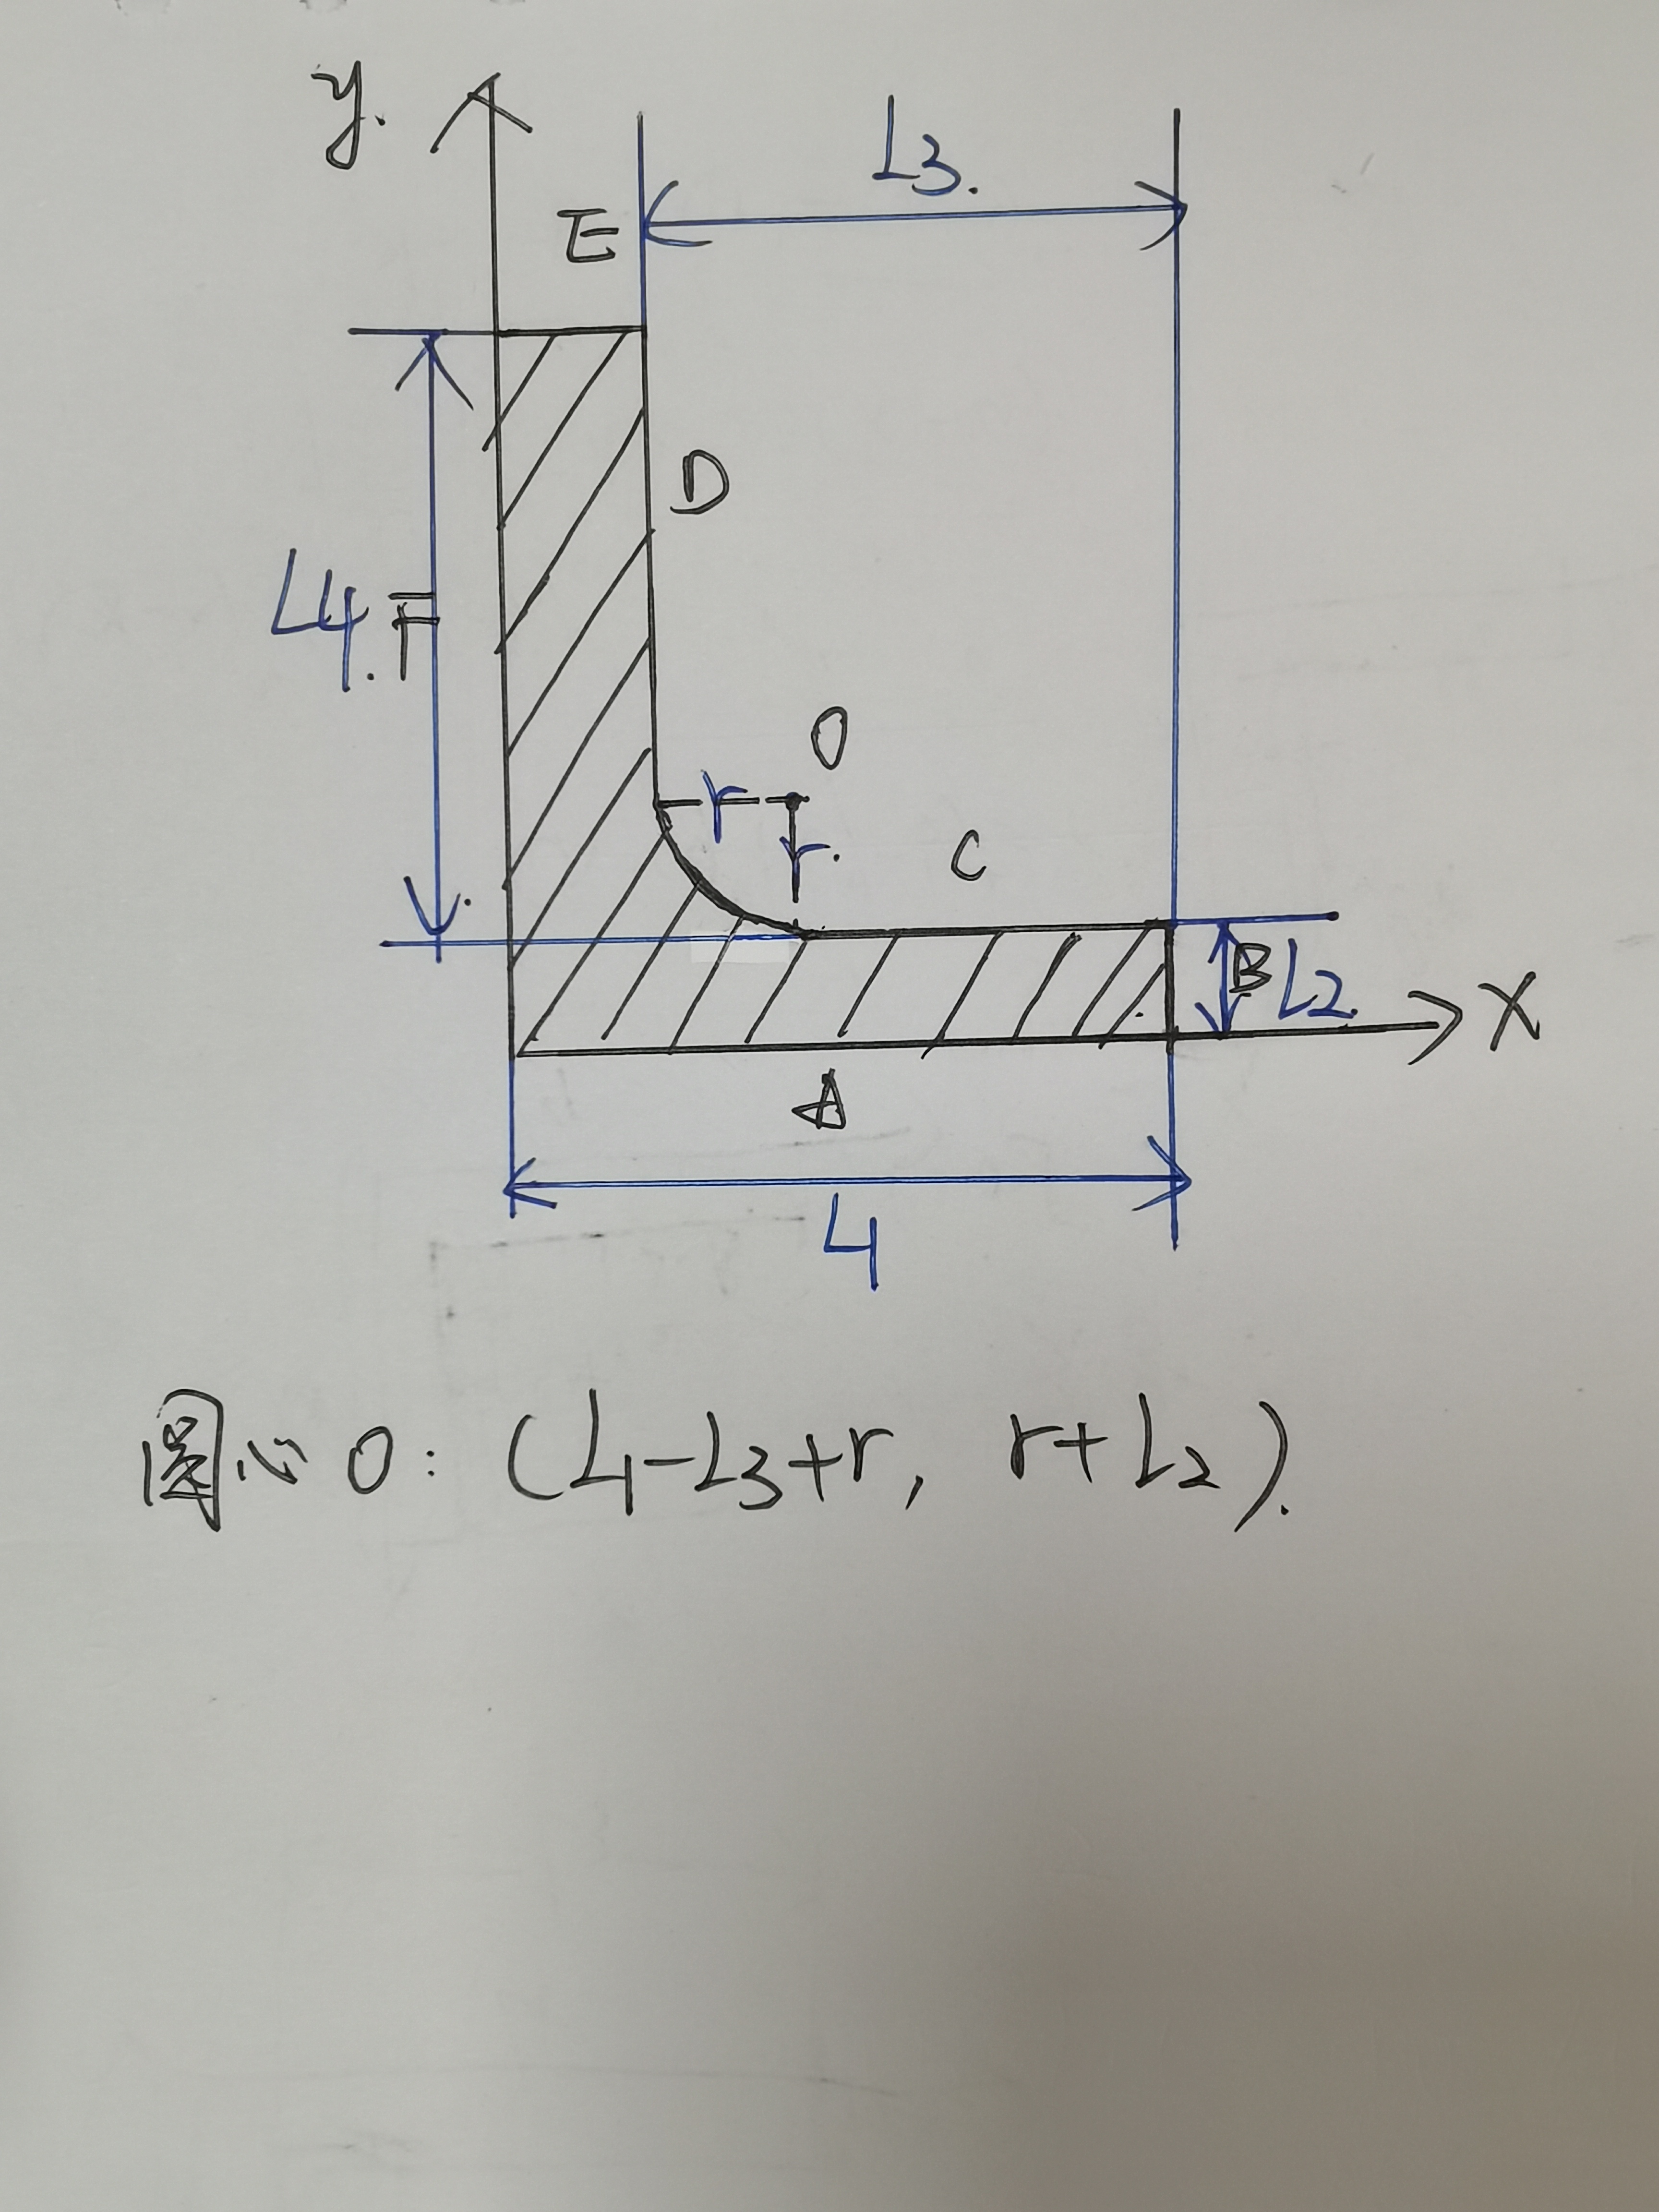 y.
L3.
E
D
L4.
F
O
r
r.
C
B
L2.
X
A
L1
圆心O: (L1-L3+r, r+L2).